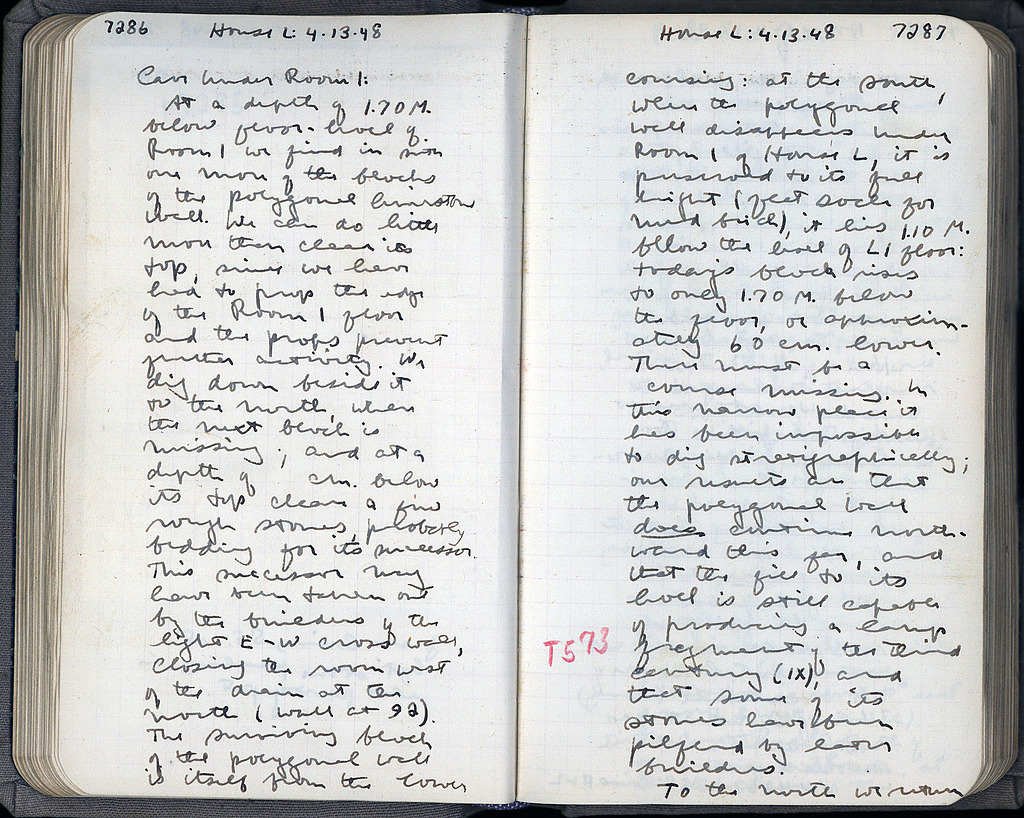 7286 House L: 4.13.48
Cave under Room 1:
At a depth of 1.70 M.
below floor-level of
Room 1 we find in situ
one more of the blocks
of the polygonal limestone
wall. We can do little
more than clear its
top, since we have
had to prop the edge
of the Room 1 floor
and the props prevent
further activity. We
dig down beside it
to the north, where
the next block is
missing; and at a
depth of cm. below
its top clear a few
rough stones, probably
bedding for its successor.
This successor may
have been taken out
by the builders of the
light E-W cross wall,
closing the room west
of the drain at the
north (wall at 92).
The surviving block
of the polygonal wall
is itself from the lower
House L: 4.13.48 7287
coursing: at the south,
where the polygonal
wall disappears under
Room 1 of House L, it is
preserved to its full
height (flat socle for
mud brick), it lies 1.10 M.
below the level of L1 floor:
today's block rises
to only 1.70 M. below
the floor, or approxim-
ately 60 cm. lower.
There must be a
course missing. In
this narrow place it
has been impossible
to dig stratigraphically;
our results are that
the polygonal wall
does continue north-
ward this far, and
that the fill to its
level is still capable
of producing a lamp
T573
fragment of the third
century (IX), and
that some of its
stones have been
pilfered by later
builders.
To the north we return